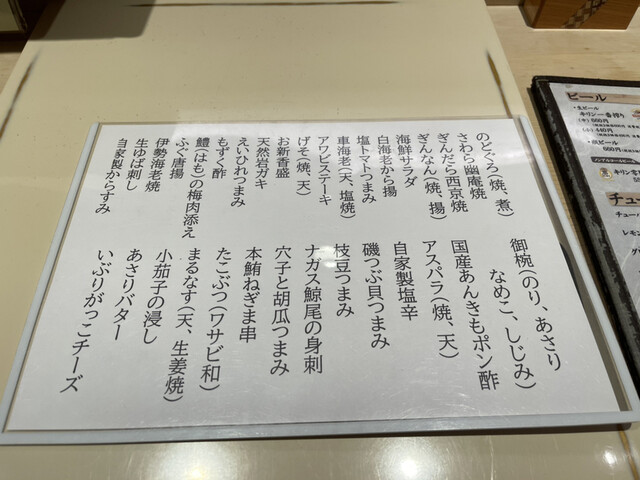 のどぐろ(焼、煮)
さわら幽庵焼
ぎんだら西京焼
ぎんなん(焼、揚)
海鮮サラダ
白海老から揚
塩トマトつまみ
車海老(天、塩焼)
アワビステーキ
げそ(焼、天)
お新香盛
天然岩ガキ
えいひれつまみ
もずく酢
鱧(はも)の梅肉添え
ふぐ唐揚
伊勢海老焼
生ゆば刺し
自家製からすみ
御椀(のり、あさり
なめこ、しじみ)
国産あんきもポン酢
アスパラ(焼、天)
自家製塩辛
磯つぶ貝つまみ
枝豆つまみ
ナガス鯨尾の身刺
穴子と胡瓜つまみ
本鮪ねぎま串
たこぶつ(ワサビ和)
まるなす(天、生姜焼)
小茄子の浸し
あさりバター
いぶりがっこチーズ
ビール
・生ビール
キリン一番搾り
(中) 660円
(小) 440円
・瓶ビール
660円
ノンアルコールビール
チュー
チューハ
レモン